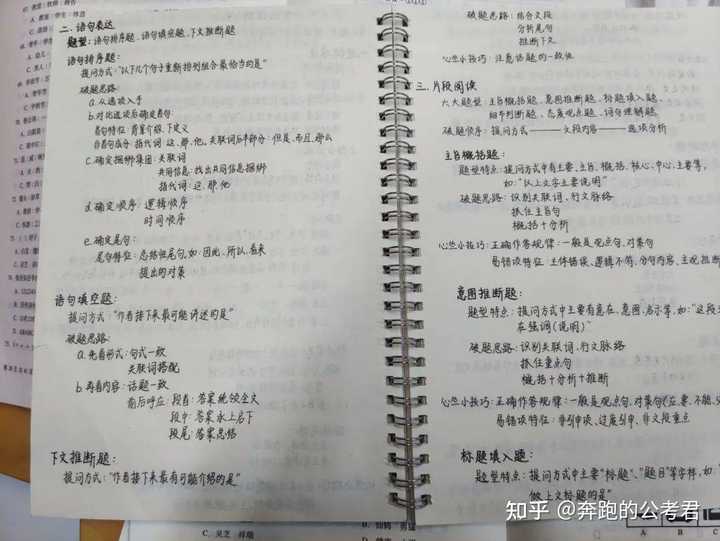 二、语句表达
题型：语句排序题、语句填空题、下文推断题
语句排序题：
提问方式："以下几个句子重新排列组合最恰当的是"
破题思路：
a.从选项入手
b.对比选项后确定首句：
首句特征：背景介绍、下定义
非首句成分：指代词：这、那、他。关联词后半部分：但是、而且、那么
c.确定捆绑集团：关联词
共同信息：找出共同信息捆绑
指代词：这、那、他
d.确定顺序：逻辑顺序
时间顺序
e.确定尾句：
尾句特征：总结性尾句，如：因此、所以、看来
提出的对策
语句填空题：
提问方式："作者接下来最可能讲述的是"
破题思路：
a.先看形式：句式一致
关联词搭配
b.再看内容：话题一致
前后呼应：段首：答案统领全文
段中：答案承上启下
段尾：答案总结
下文推断题：
提问方式："作者接下来最有可能介绍的是"
破题思路：结合文段
分析尾句
推断下文
心血小技巧：注意话题的一致性
三、片段阅读
六大题型：主旨概括题、意图推断题、标题填入题、
细节判断题、态度观点题、词句理解题
破题顺序：提问方式——文段内容——选项分析
主旨概括题：
题型特点：提问方式中有主要、主旨、概括、核心、中心、主要等，
如："以上文字主要说明"
破题思路：识别关联词、行文脉络
抓住主旨句
概括+分析
心血小技巧：正确作答规律：一般是观点句、对策句
易错项特征：主体错误、逻辑不符、分句内容、主观推断
意图推断题：
题型特点：提问方式中主要有意在、意图、启示等，如："这段
在强调（说明）"
破题思路：识别关联词、行文脉络
抓住重点句
概括+分析+推断
心血小技巧：正确作答规律：一般是观点句、对策句（应、要、不能、
易错项特征：举例中项、过度引申、非文段重点
标题填入题：
题型特点：提问方式中主要"标题"、"题目"等字样，如："
做上文标题的是"
C. 灵芝 祥瑞
知乎 @奔跑的公考君